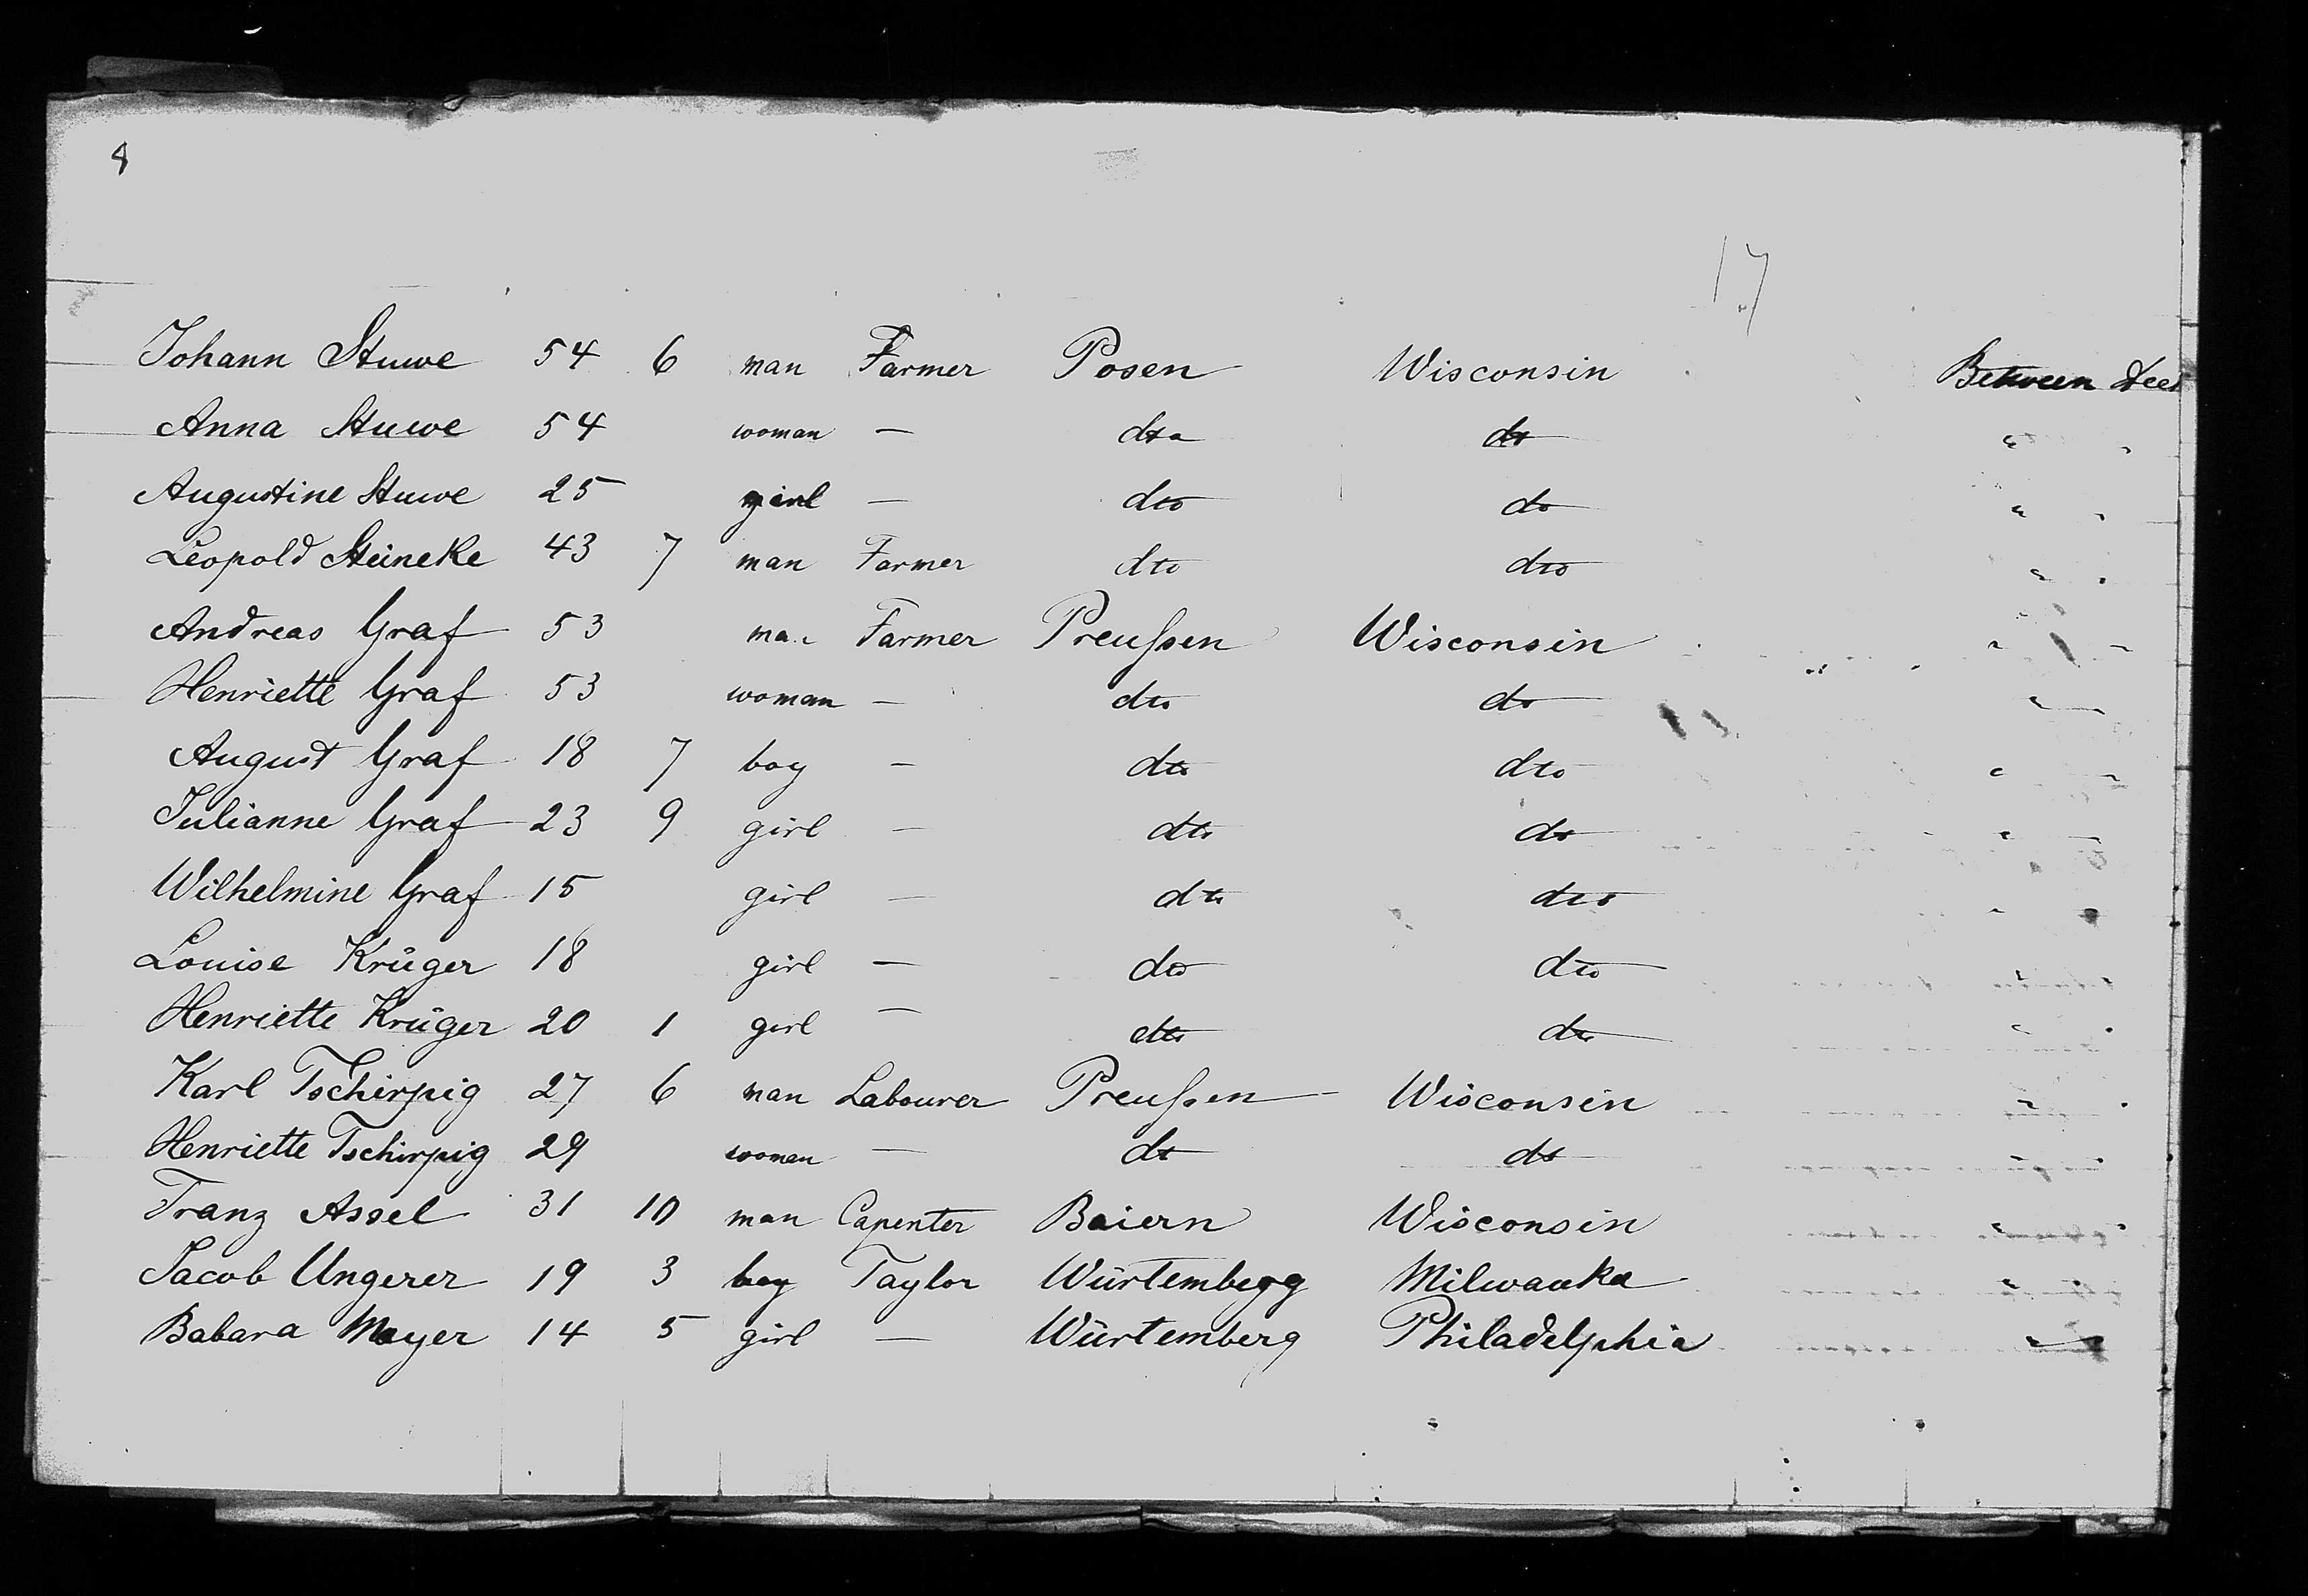 8
17
Johann Stuwe 54 6 man Farmer Posen Wisconsin Between Deck
Anna Stuwe 54 woman — dto do " "
Augustine Stuwe 25 girl — dto do " "
Leopold Steineke 43 7 man Farmer dto dto " "
Andreas Graf 53 man Farmer Preußen Wisconsin " "
Henriette Graf 53 woman — dto do " "
August Graf 18 7 boy — dto dto " "
Julianne Graf 23 9 girl — dto do " "
Wilhelmine Graf 15 girl — dto dto " "
Louise Krüger 18 girl — dto dto " "
Henriette Krüger 20 1 girl — dto dto " "
Karl Tschirpig 27 6 man Labourer Preußen Wisconsin " "
Henriette Tschirpig 29 woman — do do " "
Franz Assel 31 10 man Capenter Baiern Wisconsin " "
Jacob Ungerer 19 3 boy Taylor Würtemberg Milwauka " "
Babara Mayer 14 5 girl — Würtemberg Philadelphia " "